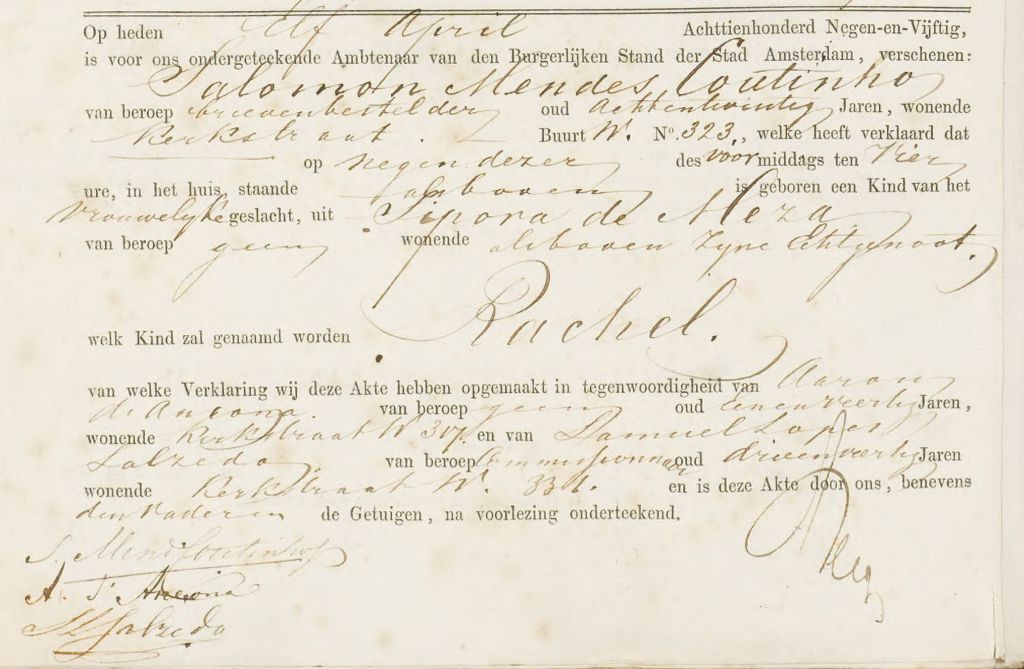 Op heden Elf April Achttienhonderd Negen-en-Vijftig,
is voor ons ondergeteekende Ambtenaar van den Burgerlijken Stand der Stad Amsterdam, verschenen:
Salomon Mendes Coutinho
van beroep brievenbesteller oud Achtentwintig Jaren, wonende
Kerkstraat. Buurt W. No. 323, welke heeft verklaard dat
op negen dezer des voormiddags ten Vier
ure, in het huis, staande alsboven is geboren een Kind van het
Vrouwelyke geslacht, uit Sipora de Meza
van beroep geen wonende alsboven zyne Echtgenoot.
welk Kind zal genaamd worden Rachel.
van welke Verklaring wij deze Akte hebben opgemaakt in tegenwoordigheid van Aaron
d'Ancona. van beroep geen oud Eenenveertig Jaren,
wonende Kerkstraat W 307. en van Samuel Lopes
Salzedo van beroep Commissionnair oud drieenveertig Jaren
wonende Kerkstraat W. 331. en is deze Akte door ons, benevens
den Vader en de Getuigen, na voorlezing onderteekend.
S. Mendes Coutinho
A. d'Ancona
SL Salzedo